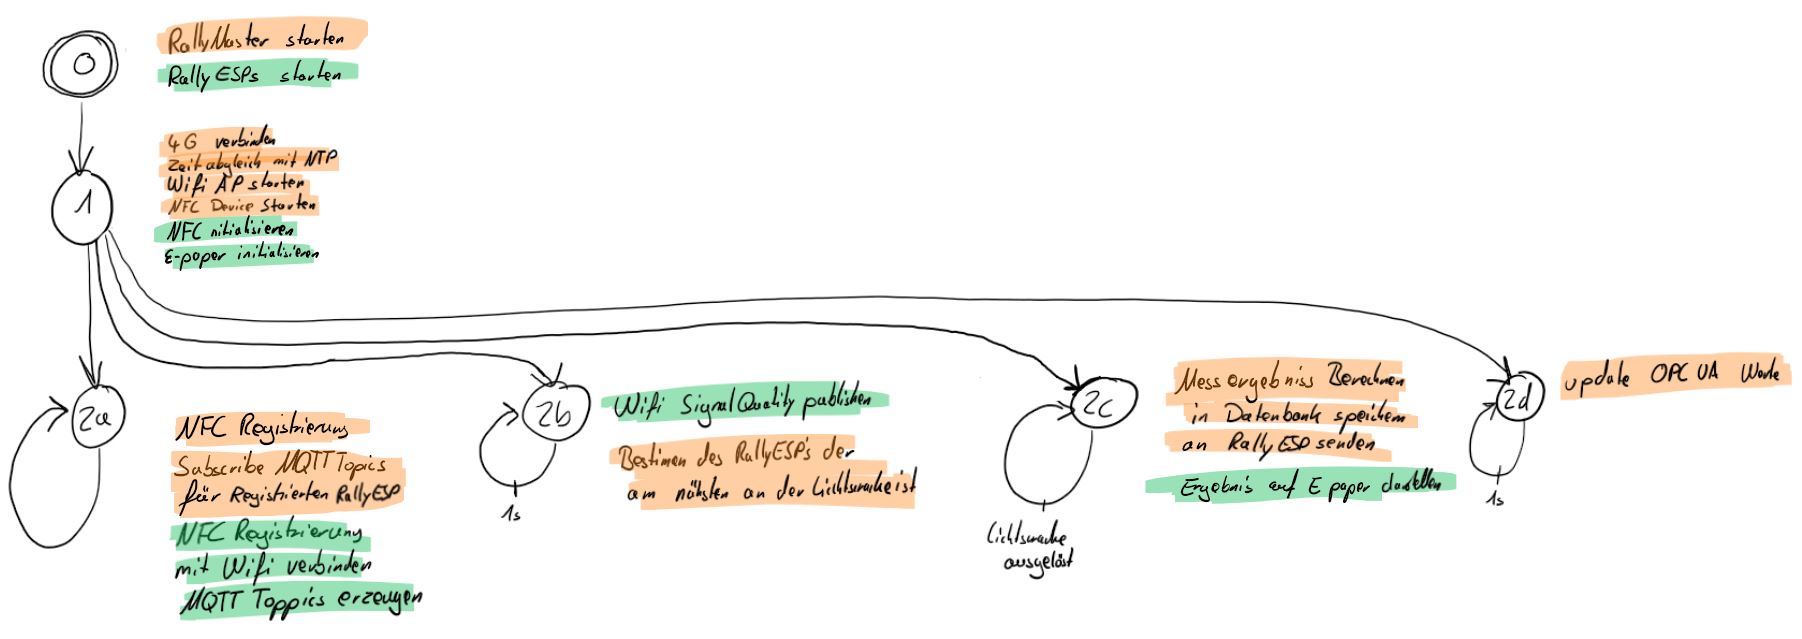 RallyMaster starten
Rally ESPs starten
4G verbinden
Zeitabgleich mit NTP
Wifi AP starten
NFC Device Starten
1
NFC nitialisieren
E-paper initialisieren
2a
NFC Registrierung
Subscribe MQTT Topics
für Registrierten RallyESP
NFC Registrierung
mit Wifi verbinden
MQTT Toppics erzeugen
2b
Wifi SignalQuality publishen
Bestimen des RallyESP's der
am nähsten an der Lichtschranke ist
1s
2c
Messergebniss Berechnen
in Datenbank speichern
an RallyESP senden
Ergebnis auf E paper darstellen
Lichtschranke
ausgelöst
2d
update OPC UA Werte
1s